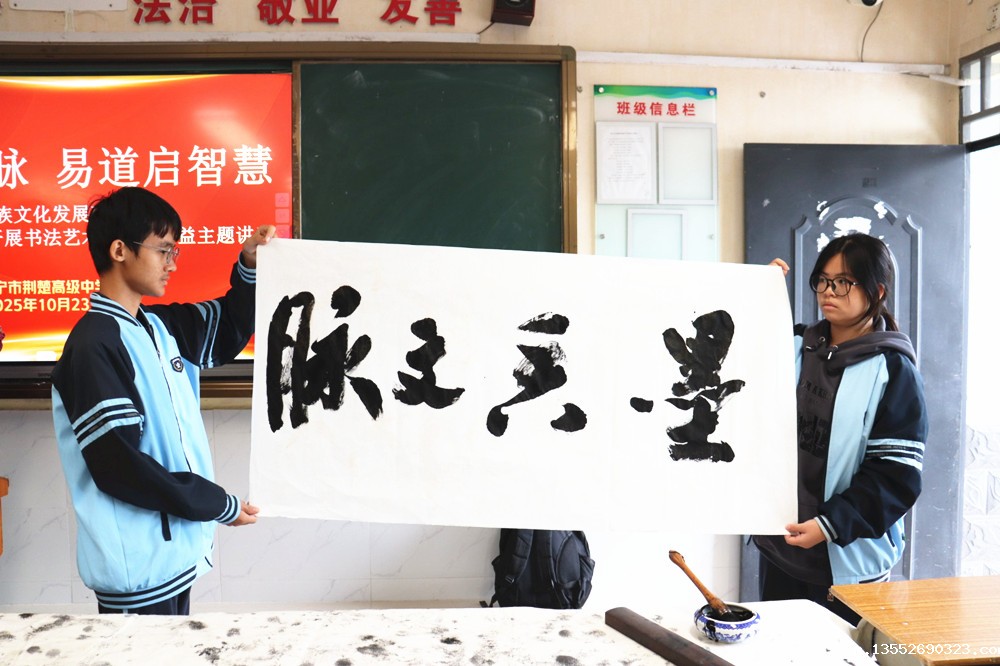 法治 敬业 友善
脉 易道启智慧
族文化发展
开展书法艺 益主题讲
宁市荆楚高级中
2025年10月23
班级信息栏
墨 文脉
13552690323.co